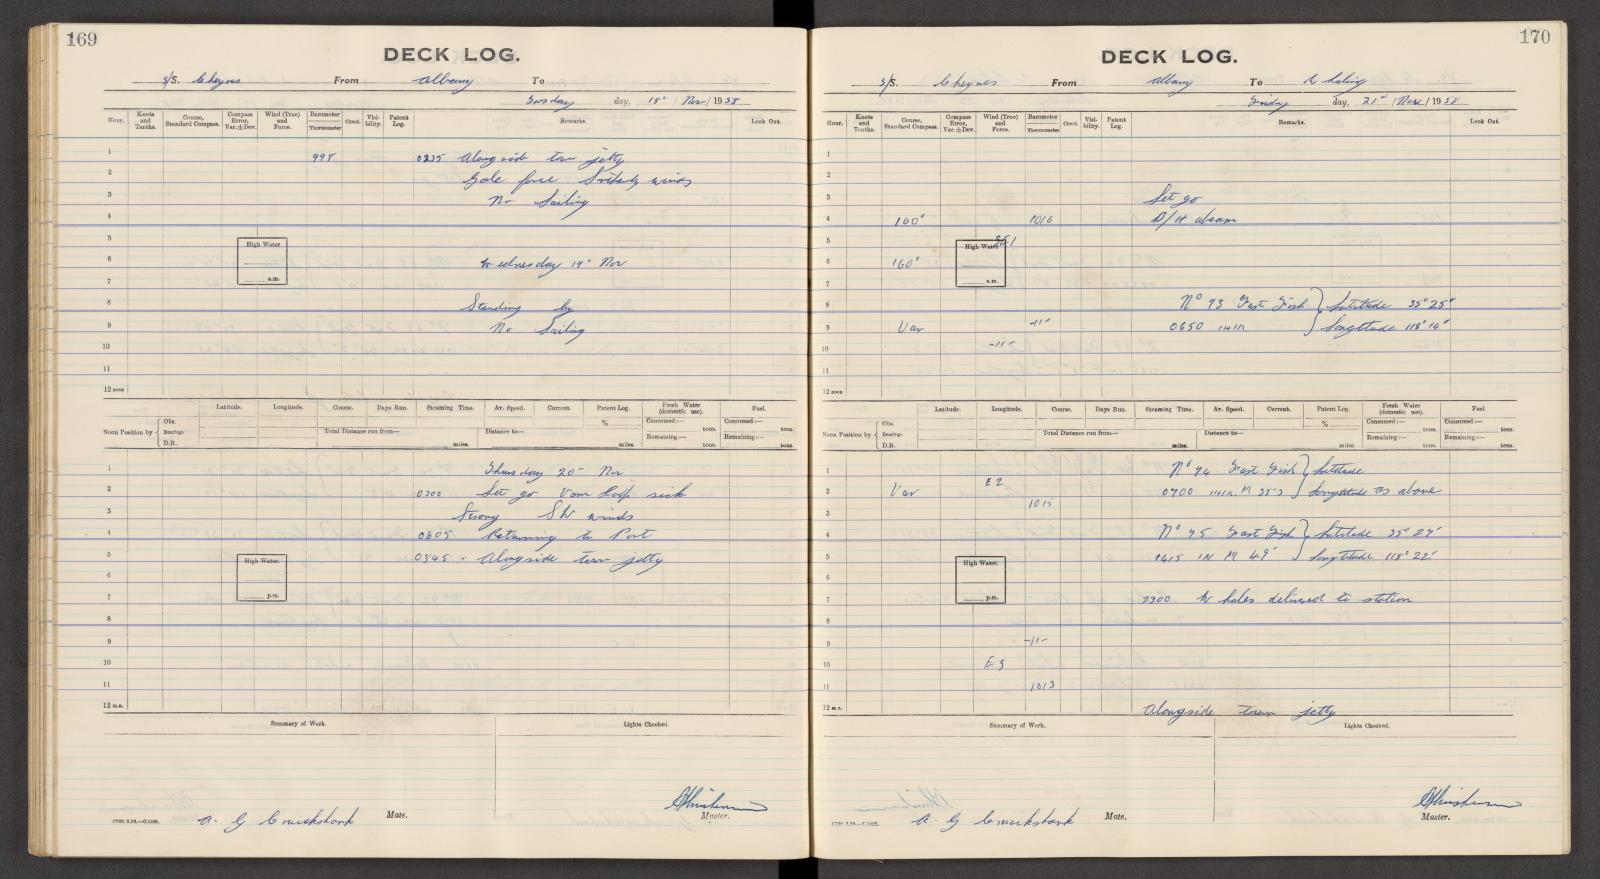 169
DECK LOG.
S/S. Cheynes From Albany To
Tuesday day, 18" / Nov / 1958
Hour. Knots and Tenths. Course, Standard Compass. Compass Error, Var. ± Dev. Wind (True) and Force. Barometer Thermometer Cloud. Visibility. Patent Log. Remarks. Look Out.
1 998 0235 Alongside town jetty
2 Gale force winds
3 No Sailing
4
5 High Water
6 a.m. Wednesday 19" Nov
7
8 Standing by
9 No Sailing
10
11
12 noon
Latitude. Longitude. Course. Days Run. Steaming Time. Av. Speed. Current. Patent Log. Fresh Water (domestic use). Fuel.
Noon Position by Obs. Bearings D.R. % Consumed:— tons. Consumed:— tons.
Total Distance run from— miles. Distance to— miles. Remaining:— tons. Remaining:— tons.
1 Thursday 20" Nov
2 0300 Let go sick
3 Strong SW winds
4 0605 Returning to Port
5 0845 Alongside town jetty
High Water.
6
7 p.m.
8
9
10
11
12 m.n.
Summary of Work. Lights Checked.
A. G Cruickshank Mate. Master.
170
DECK LOG.
S/S. Cheynes From Albany To Whaling
Friday day, 21" / Nov / 1958
Hour. Knots and Tenths. Course, Standard Compass. Compass Error, Var. ± Dev. Wind (True) and Force. Barometer Thermometer Cloud. Visibility. Patent Log. Remarks. Look Out.
1
2
3 Let go
4 160° 1016 B/H abeam
5 High Water SE 1
6 160° a.m.
7
8 N° 93 Fast Fish } Latitude 35° 25'
9 Var -11- 0650 Longtitude 118° 14'
10 -11-
11
12 noon
Latitude. Longitude. Course. Days Run. Steaming Time. Av. Speed. Current. Patent Log. Fresh Water (domestic use). Fuel.
Noon Position by Obs. Bearings D.R. % Consumed:— tons. Consumed:— tons.
Total Distance run from— miles. Distance to— miles. Remaining:— tons. Remaining:— tons.
1 N° 94 Fast Fish } Latitude
2 Var E 2 0700 M Longtitude as above
3 1015
4 N° 95 Fast Fish } Latitude 35° 29'
5 High Water. M 49' Longtitude 118° 22'
6
7 p.m. 2300 Whales delivered to station
8
9 -11-
10 E 3
11 1013
12 m.n. Alongside town jetty
Summary of Work. Lights Checked.
A. G Cruickshank Mate. Master.